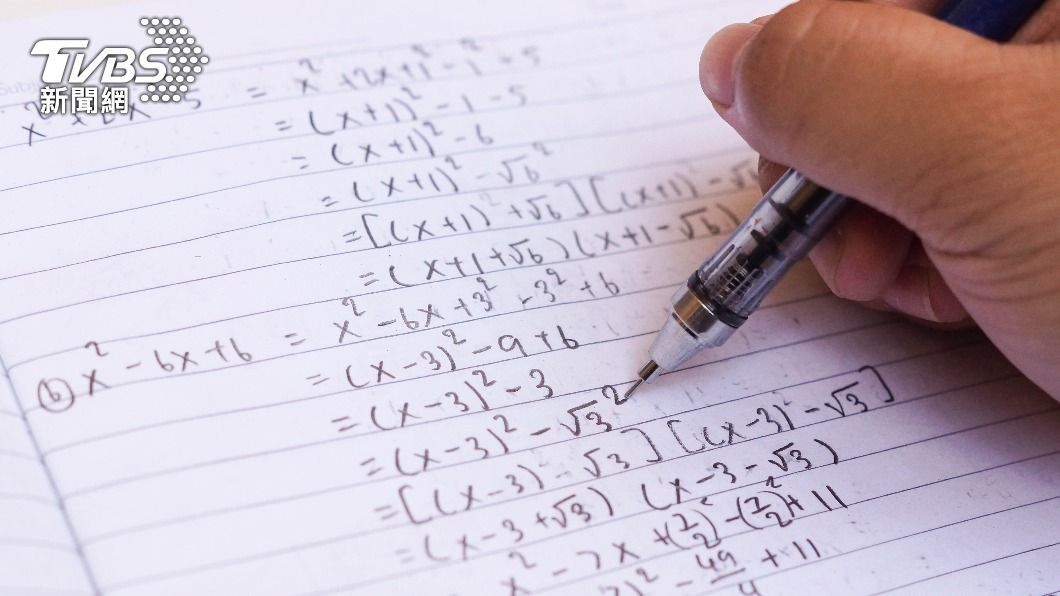 TVBS
新聞網
x² + 2x - 5 = x² + 2x + 1² - 1² - 5
= (x+1)² - 1 - 5
= (x+1)² - 6
= (x+1)² - √6²
= [(x+1)² + √6] [(x+1) - √6
= (x+1+√6) (x+1-√6)
(b) x² - 6x + 6 = x² - 6x + 3² - 3² + 6
= (x-3)² - 9 + 6
= (x-3)² - 3
= (x-3)² - √3²
= [(x-3) - √3] [(x-3) - √3]
= (x-3+√3) (x-3-√3)
x² - 7x + (7/2)² - (7/2)² + 11
)² - 49/4 + 11